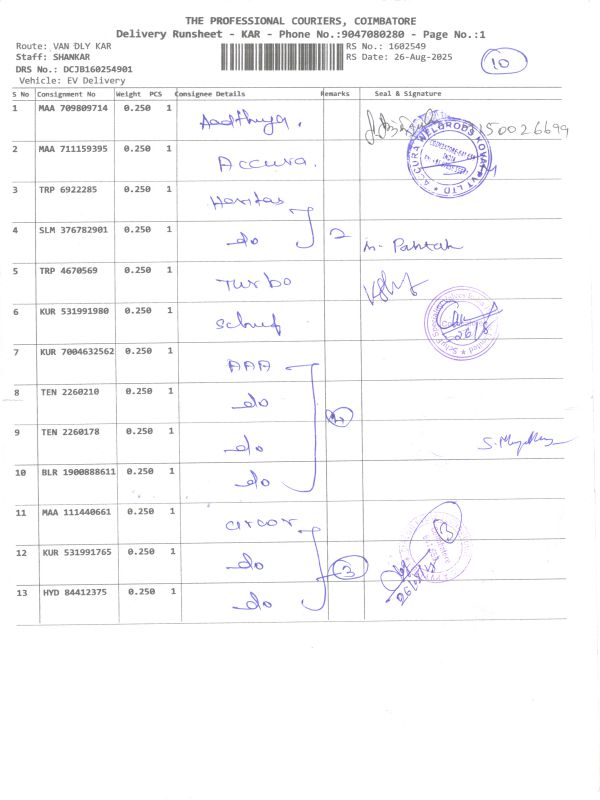 THE PROFESSIONAL COURIERS, COIMBATORE
Delivery Runsheet - KAR - Phone No.:9047080280 - Page No.:1
Route: VAN DLY KAR
RS No.: 1602549
Staff: SHANKAR
RS Date: 26-Aug-2025
10
DRS No.: DCJB160254901
Vehicle: EV Delivery
S No Consignment No Weight PCS Consignee Details Remarks Seal & Signature
1 MAA 709809714 0.250 1 Aadthya.
2 MAA 711159395 0.250 1 Accura.
3 TRP 6922285 0.250 1 Haritas
4 SLM 376782901 0.250 1 do 2
5 TRP 4670569 0.250 1 Turbo
6 KUR 531991980 0.250 1 26/8
7 KUR 7004632562 0.250 1 AAA
8 TEN 2260210 0.250 1 do 4
9 TEN 2260178 0.250 1 do
10 BLR 1900888611 0.250 1 do
11 MAA 111440661 0.250 1 circor
12 KUR 531991765 0.250 1 do 3
13 HYD 84412375 0.250 1 do